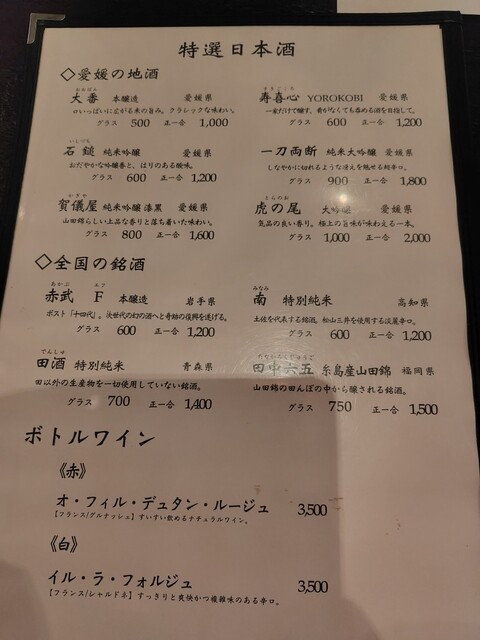 特選日本酒
◇愛媛の地酒
おおばん
大番 本醸造 愛媛県
口いっぱいに広がる米の旨み。クラシックな味わい。
グラス 500 正一合 1,000
寿喜心 YOROKOBI 愛媛県
グラス 600 正一合 1,200
いしづち
石鎚 純米吟醸 愛媛県
おだやかな吟醸香と、はりのある酸味。
グラス 600 正一合 1,200
一刀両断 純米大吟醸 愛媛県
しなやかに切れるような冴えを魅せる超辛口。
グラス 900 正一合 1,800
かぎや
賀儀屋 純米吟醸 漆黒 愛媛県
山田錦らしい上品な香りと落ち着いた味わい。
グラス 800 正一合 1,600
とらのお
虎の尾 大吟醸 愛媛県
気品の良い香り。極上の旨味が味わえる一本。
グラス 1,000 正一合 2,000
◇全国の銘酒
あかぶ エフ
赤武 F 本醸造 岩手県
ポスト「十四代」。次世代の幻の酒へと奇跡の復興を遂げる。
グラス 600 正一合 1,200
みなみ
南 特別純米 高知県
土佐を代表する銘酒。松山三井を使用する淡麗辛口。
グラス 600 正一合 1,200
でんしゅ
田酒 特別純米 青森県
田以外の生産物を一切使用していない銘酒。
グラス 700 正一合 1,400
たなかろくじゅうご
田中六五 糸島産山田錦 福岡県
山田錦の田んぼの中から醸される銘酒。
グラス 750 正一合 1,500
ボトルワイン
《赤》
オ・フィル・デュタン・ルージュ 3,500
【フランス/グルナッシュ】すいすい飲めるナチュラルワイン。
《白》
イル・ラ・フォルジュ 3,500
【フランス/シャルドネ】すっきりと爽快かつ複雑味のある辛口。